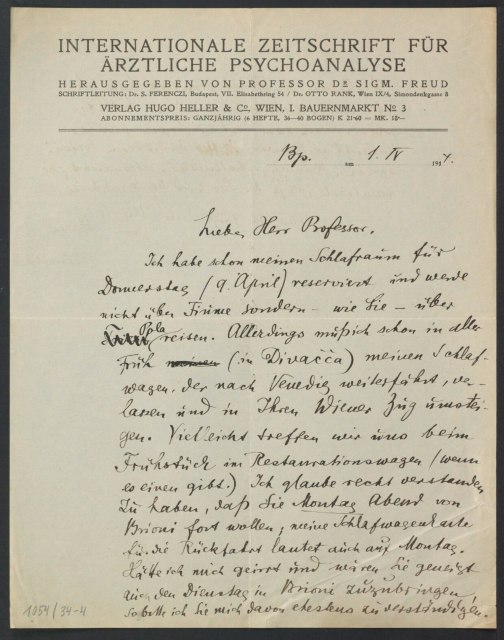 INTERNATIONALE ZEITSCHRIFT FÜR
ÄRZTLICHE PSYCHOANALYSE
HERAUSGEGEBEN VON PROFESSOR DR SIGM. FREUD
SCHRIFTLEITUNG: Dr. S. FERENCZI, Budapest, VII. Elisabethring 54 / Dr. OTTO RANK, Wien IX/4, Simondenkgasse 8
VERLAG HUGO HELLER & Co, WIEN, I. BAUERNMARKT No 3
ABONNEMENTSPREIS: GANZJÄHRIG (6 HEFTE, 36—40 BOGEN) K 21·60 = MK. 18·—
Bp. am 1. IV 1914.
Lieber Herr Professor,
Ich habe schon meinen Schlafraum für
Donnerstag (9. April) reservirt und werde
nicht über Fiume sondern – wie Sie – über
Pola reisen. Allerdings muß ich schon in aller
Früh (in Divacča) meinen Schlaf-
wagen, der nach Venedig weiterfährt, ver-
lassen und in Ihren Wiener Zug umstei-
gen. Vielleicht treffen wir uns beim
Frühstück im Restaurationswagen (wenn
es einen gibt.) Ich glaube recht verstanden
zu haben, daß Sie Montag Abend von
Brioni fort wollen; meine Schlafwagenkarte
für die Rückfahrt lautet auch auf Montag.
Hätte ich mich geirrt und wären Sie geneigt
auch den Dienstag in Brioni zuzubringen,
so bitte ich Sie mich davon ehestens zu verständigen.
1054/34-4